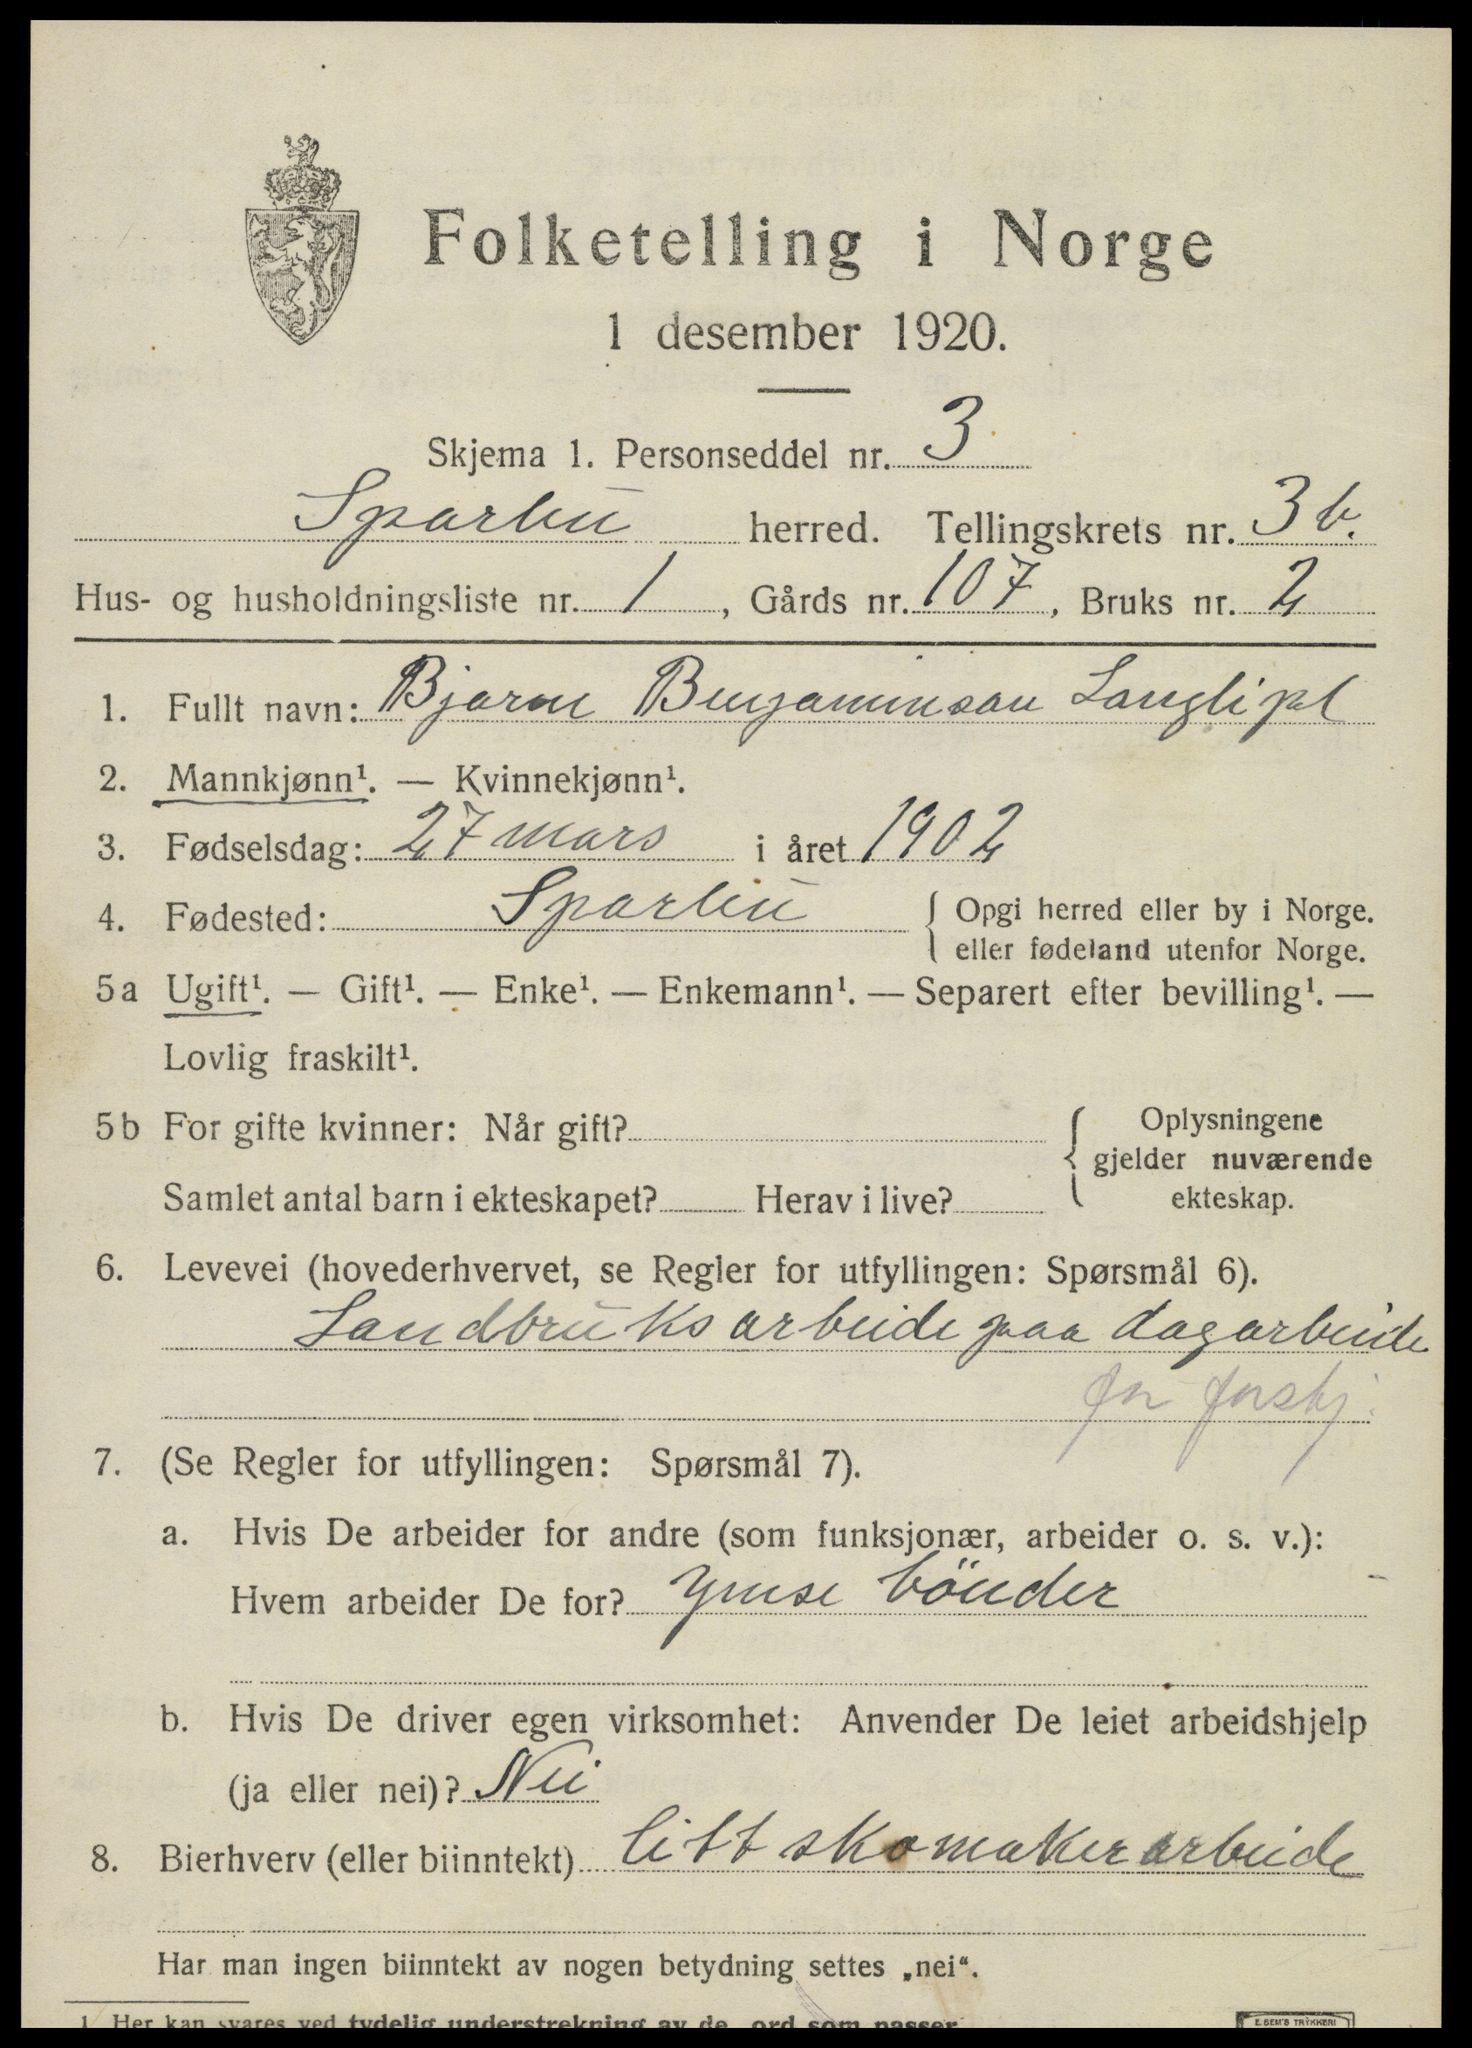 Folketelling i Norge
1 desember 1920.
Skjema 1. Personseddel nr. 3
Sparbu herred. Tellingskrets nr. 3b.
Hus- og husholdningsliste nr. 1, Gårds nr. 107, Bruks nr. 2
1. Fullt navn: Bjarne Benjaminsøn Langli pl
2. Mannkjønn¹. — Kvinnekjønn¹.
3. Fødselsdag: 27 mars i året 1902
4. Fødested: Sparbu { Opgi herred eller by i Norge.
eller fødeland utenfor Norge.
5a Ugift¹. — Gift¹. — Enke¹. — Enkemann¹. — Separert efter bevilling¹. —
Lovlig fraskilt¹.
5b For gifte kvinner: Når gift? { Oplysningene
gjelder nuværende
Samlet antal barn i ekteskapet? Herav i live? ekteskap.
6. Levevei (hovederhvervet, se Regler for utfyllingen: Spørsmål 6).
Landbruksarbeide paa dagarbeide
for forskj.
7. (Se Regler for utfyllingen: Spørsmål 7).
a. Hvis De arbeider for andre (som funksjonær, arbeider o. s. v.):
Hvem arbeider De for? Ymse bönder
b. Hvis De driver egen virksomhet: Anvender De leiet arbeidshjelp
(ja eller nei)? Nei
8. Bierhverv (eller biinntekt) litt skomakerarbeide
Har man ingen biinntekt av nogen betydning settes „nei“.
1 Her kan svares ved tydelig understrekning av de ord som passer.
E. SEM'S TRYKKERI